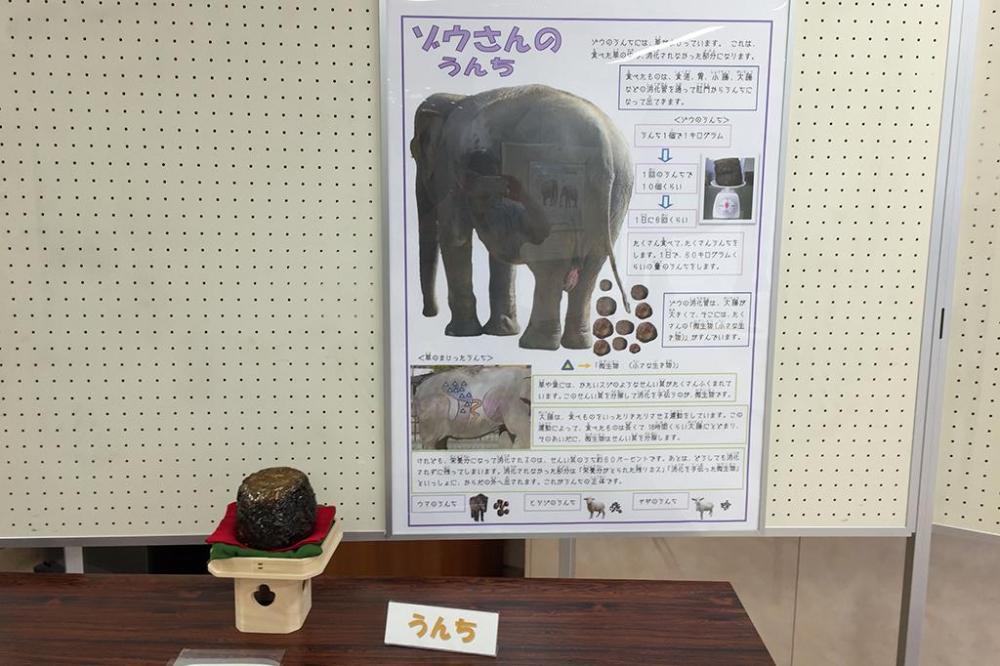 ゾウさんの
うんち
ゾウのうんちには、草がまじっています。これは、
食べた草のせんい、消化されなかった部分になります。
食べたものは、食道、胃、小腸、大腸
などの消化管を通って肛門からうんちに
なって出てきます。
＜ゾウのうんち＞
うんち1個で1キログラム
1回のうんちで
10個くらい
1日に6回くらい
たくさん食べて、たくさんうんちを
します。1日で、60キログラムく
らいの量のうんちをします。
ゾウの消化管は、大腸が
大きくて、そこには、たく
さんの「微生物（小さな生
き物）」がすんでいます。
＜草のまじったうんち＞
「微生物 （小さな生き物）」
草や葉には、かたいスジのようなせんい質がたくさんふくまれて
います。このせんい質を分解して消化を手伝うのが、微生物です。
大腸は、食べものをいったりきたりさせる運動をしています。この
運動によって、食べたものは長くて18時間くらい大腸にとどまり、
そのあいだに、微生物はせんい質を分解します。
けれども、栄養分になって消化されるのは、せんい質のうち約60パーセントです。あとは、どうしても消化
されずに残ってしまいます。消化されなかった部分は「栄養分がとられた残りカス」「消化を手伝った微生物」
といっしょに、からだの外へ出されます。これがうんちの正体です。
ウマのうんち
ヒツジのうんち
ヤギのうんち
うんち